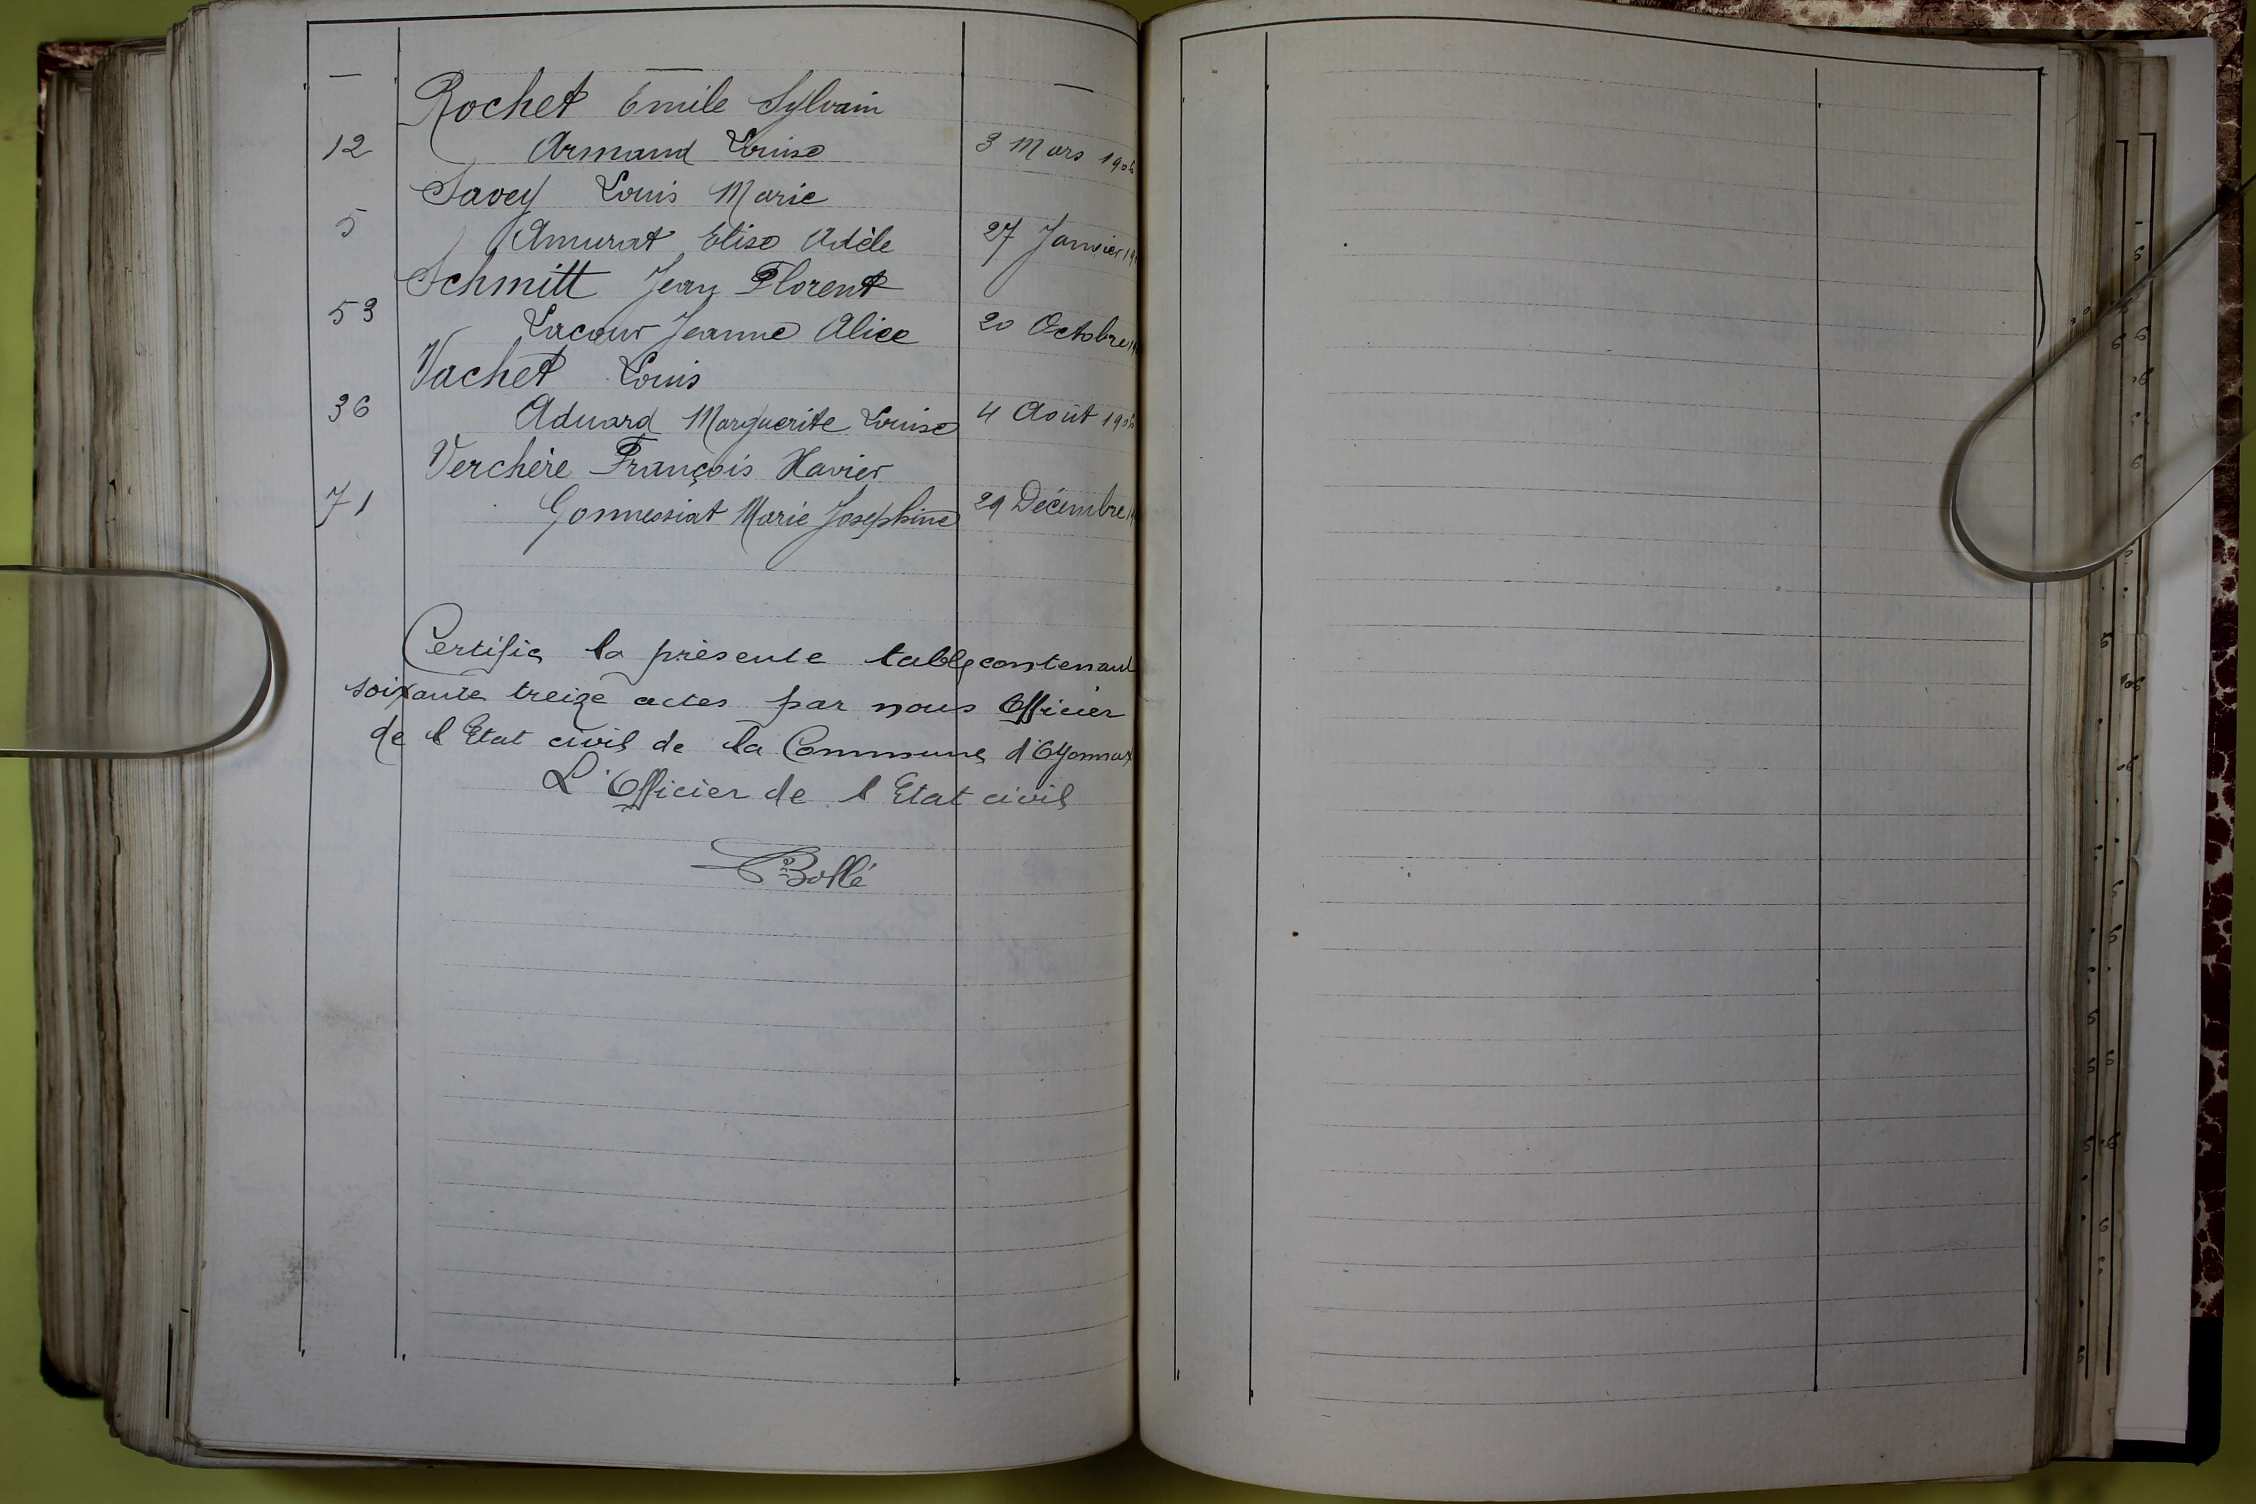 Rochet Emile Sylvain
12 Armand Louise 3 Mars
Savey Louis Marie
5 Amurat Elise Adèle 27 Janvier
Schmitt Jean Florent
53 Lacour Jeanne Alice 20 Octobre
Vachet Louis
36 Aduard Marguerite Louise 4 Août
Verchère François Xavier
71 Gonnessiat Marie Josephine 29 Décembre
Certifié la présente table contenant
soixante treize actes par nous Officier
de l'Etat civil de la Commune d'Oyonnax
L'Officier de l'Etat civil
Bollé